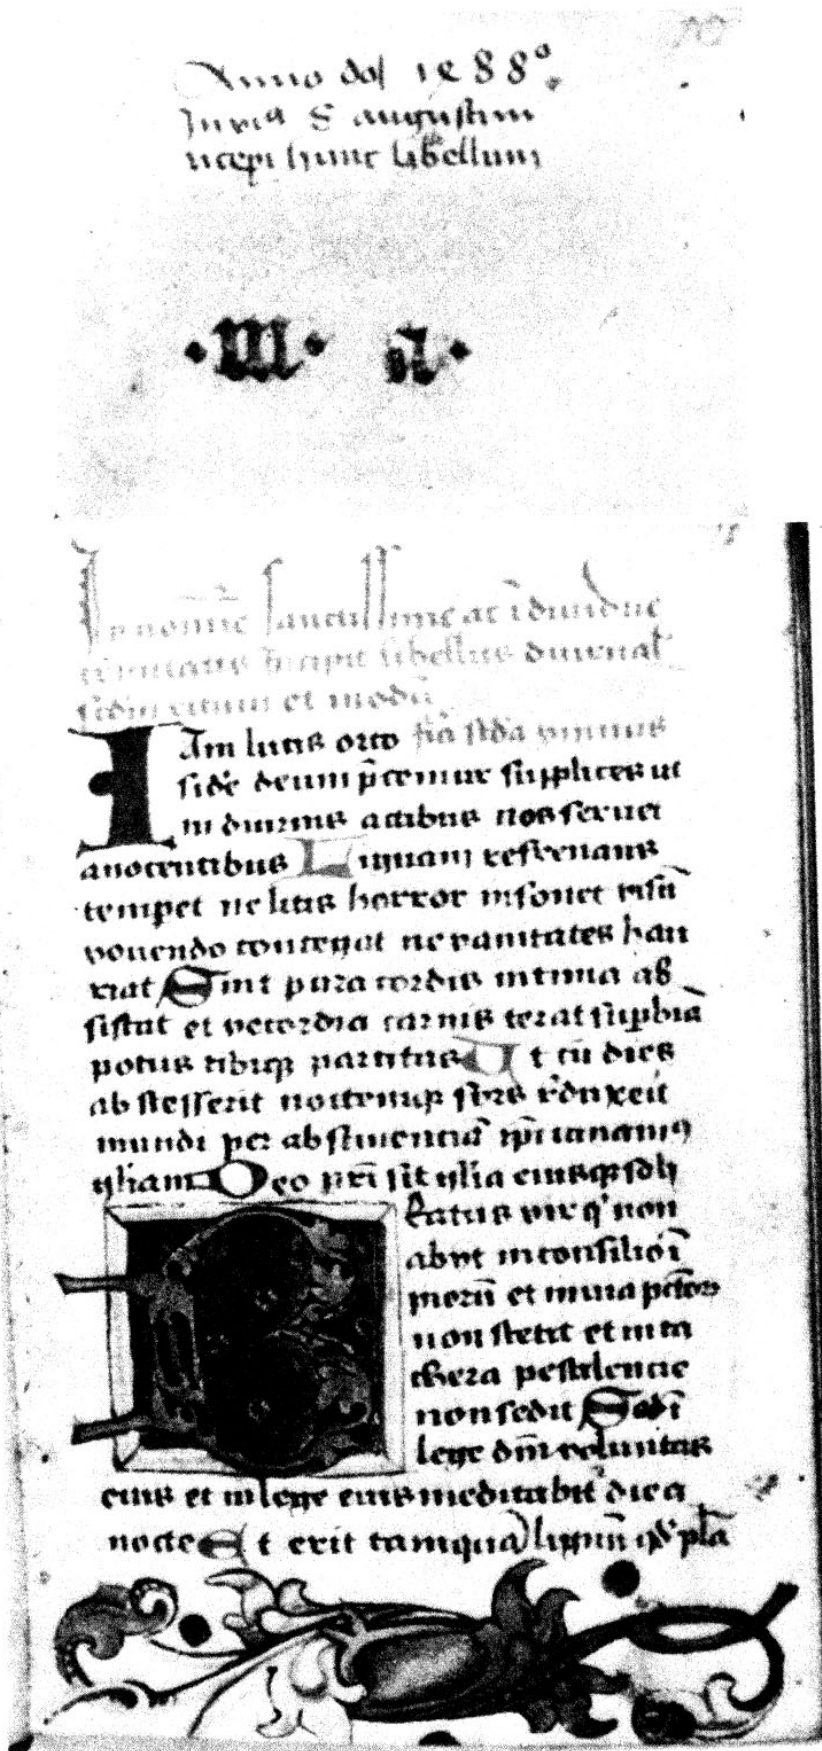 Anno doī 1488°
In vīā S augustini
incepi hunc libellum
· m · n ·
In nomīe sanctissime ac īdiuidue
trinitatis Incipit libellus diurnal
scdm ritum et modū
Iam lucis orto fīa scda primus
sidē deum p̄cemur supplices ut
in diurnis actibus nos seruet
anocentibus Linguam refrenans
temperet ne litis horror insonet visū
vouendo contegat ne vanitates hau
riat Sint pura cordis intima ab
sistat et vecordia carnis terat supbiā
potus cibiqꝫ parcitas Ut cū dies
abscesserit noctemqꝫ sors rͥduxerit
mundi per abstinenciā ip̄i canamꝰ
gliam Deo pr̄i sit glia eiusqꝫ soli
Beatus vir qͥ non
abyt in consilio ī
piorū et in uia pctor
non stetit et in ca
thera pestilencie
non sedit Sed ī
lege dn̄i voluntas
eius et in lege eius meditabitᷣ die a
nocte Et erit tamquā lignū qd plā